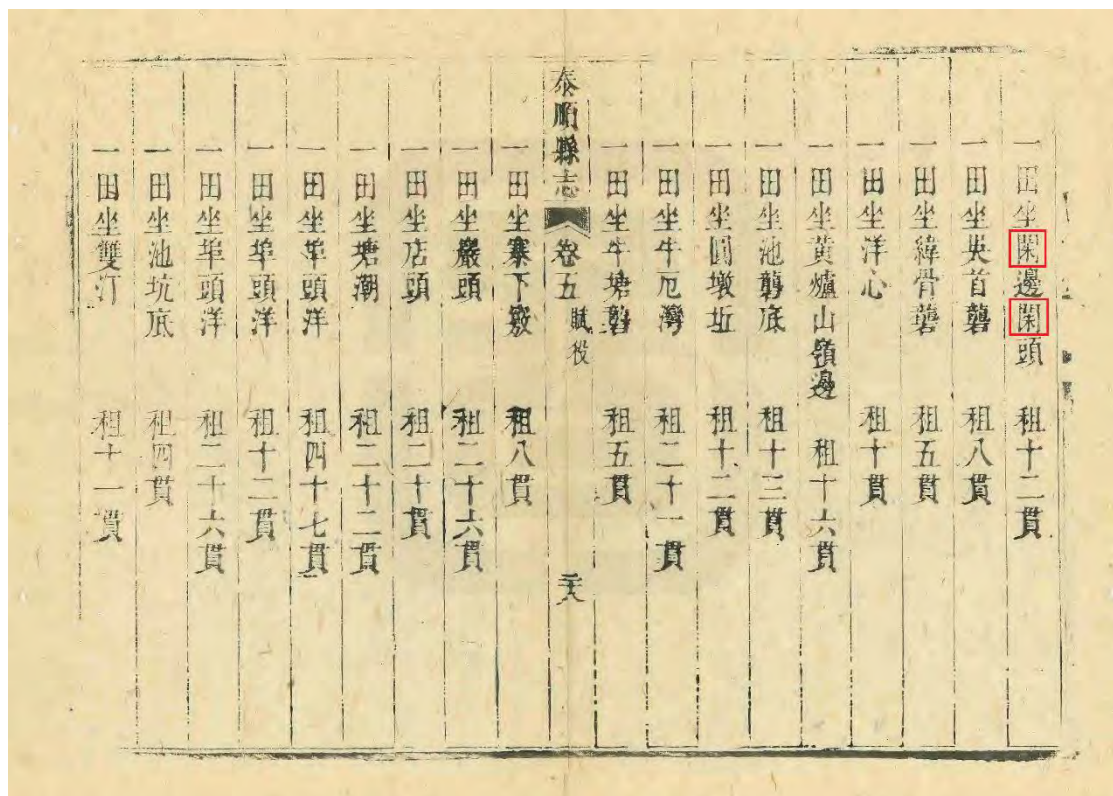 一田坐閑邊閑頭 租十二貫
一田坐央首礱 租八貫
一田坐緯骨礱 租五貫
一田坐洋心 租十貫
一田坐黄爐山嶺邊 租十六貫
一田坐池礱底 租十三貫
一田坐圓墩坵 租十二貫
一田坐牛厄灣 租二十一貫
一田坐牛塘礱 租五貫
泰順縣志 卷五 賦役 二十八
一田坐寨下窽 租八貫
一田坐巖頭 租二十六貫
一田坐店頭 租二十貫
一田坐塘潮 租二十二貫
一田坐埠頭洋 租四十七貫
一田坐埠頭洋 租十二貫
一田坐埠頭洋 租二十六貫
一田坐池坑底 租四貫
一田坐雙汀 租十一貫